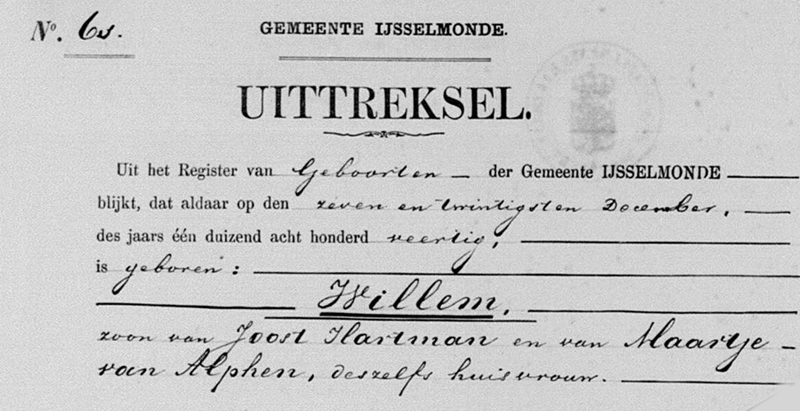 N°. 61.
GEMEENTE IJSSELMONDE.
UITTREKSEL.
Uit het Register van Geboorten — der Gemeente IJSSELMONDE
blijkt, dat aldaar op den zeven en twintigsten December,
des jaars één duizend acht honderd veertig,
is geboren:
Willem,
zoon van Joost Hartman en van Maartje
van Alphen, deszelfs huisvrouw.